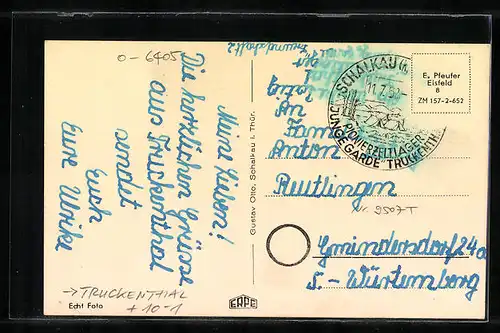 O-6405
Meine Lieben!
Die herzlichen Grüsse
aus Truckenthal
sendet
Euch
Eure Ulrike
→ TRUCKENTHAL
+ 10-1
Echt Foto
Gustav Otto, Schalkau i. Thür.
SCHALKAU
11.7.
PIONIERZELTLAGER
JUNGE GARDE TRUCKENTH
E. Pfeufer
Eisfeld
8
ZM 157-2-652
An
Fam
Anton
Reutlingen
Nr. 9507T
Gmindersdorf 24a
S.-Würtemberg